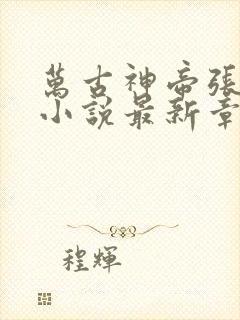 萬古神帝張
小說最新章
程輝